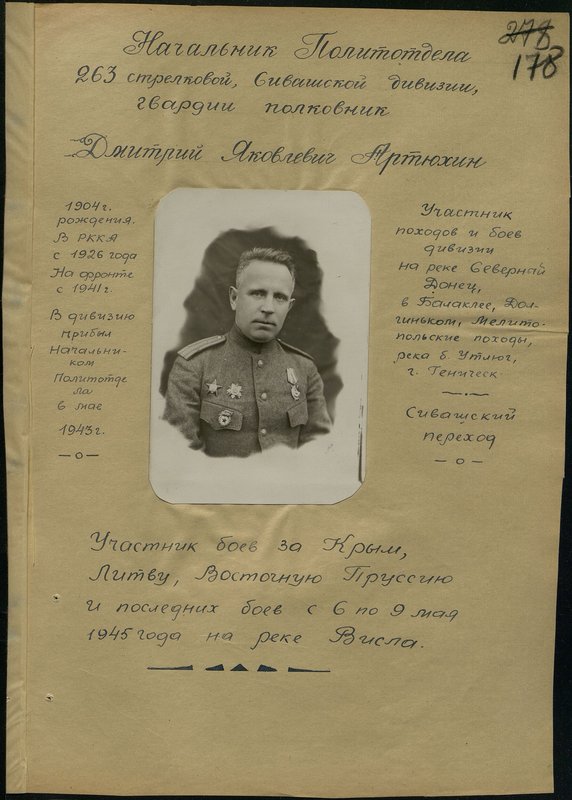 278
178
Начальник Политотдела
263 стрелковой, Сивашской дивизии,
гвардии полковник
Дмитрий Яковлевич Артюхин
1904 г.
рождения.
В РККА
с 1926 года
На фронте
с 1941 г.
В дивизию
прибыл
Начальни-
ком
Политотде
ла
в мае
1943 г.
Участник
походов и боев
дивизии
на реке Северный
Донец,
в Балаклее, Дол-
гиньком, Мелито-
польские походы,
река б. Утлюг,
г. Геническ.
Сивашский
переход
Участник боев за Крым,
Литву, Восточную Пруссию
и последних боев с 6 по 9 мая
1945 года на реке Висла.